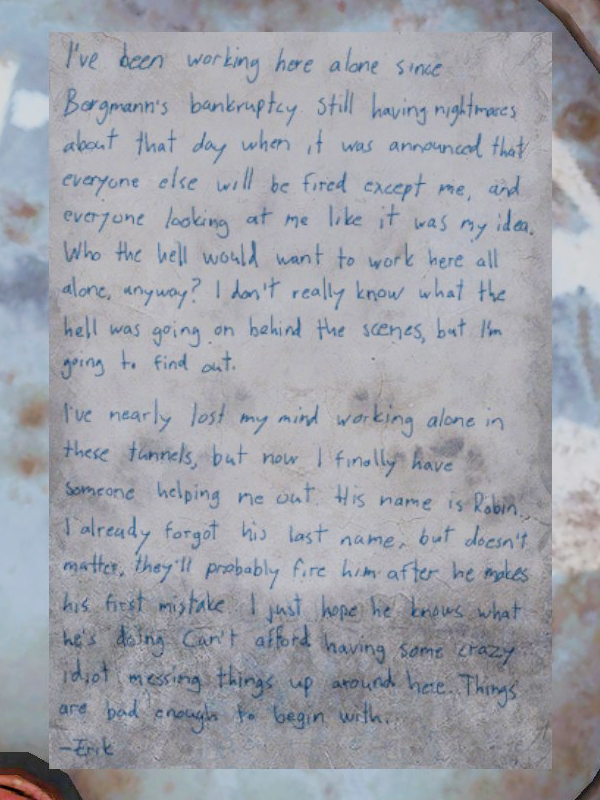 I've been working here alone since
Bergmann's bankruptcy. Still having nightmares
about that day when it was announced that
everyone else will be fired except me, and
everyone looking at me like it was my idea.
Who the hell would want to work here all
alone, anyway? I don't really know what the
hell was going on behind the scenes, but I'm
going to find out.
I've nearly lost my mind working alone in
these tunnels, but now I finally have
someone helping me out. His name is Robin.
I already forgot his last name, but doesn't
matter, they'll probably fire him after he makes
his first mistake. I just hope he knows what
he's doing. Can't afford having some crazy
idiot messing things up around here. Things
are bad enough to begin with...
-Erik